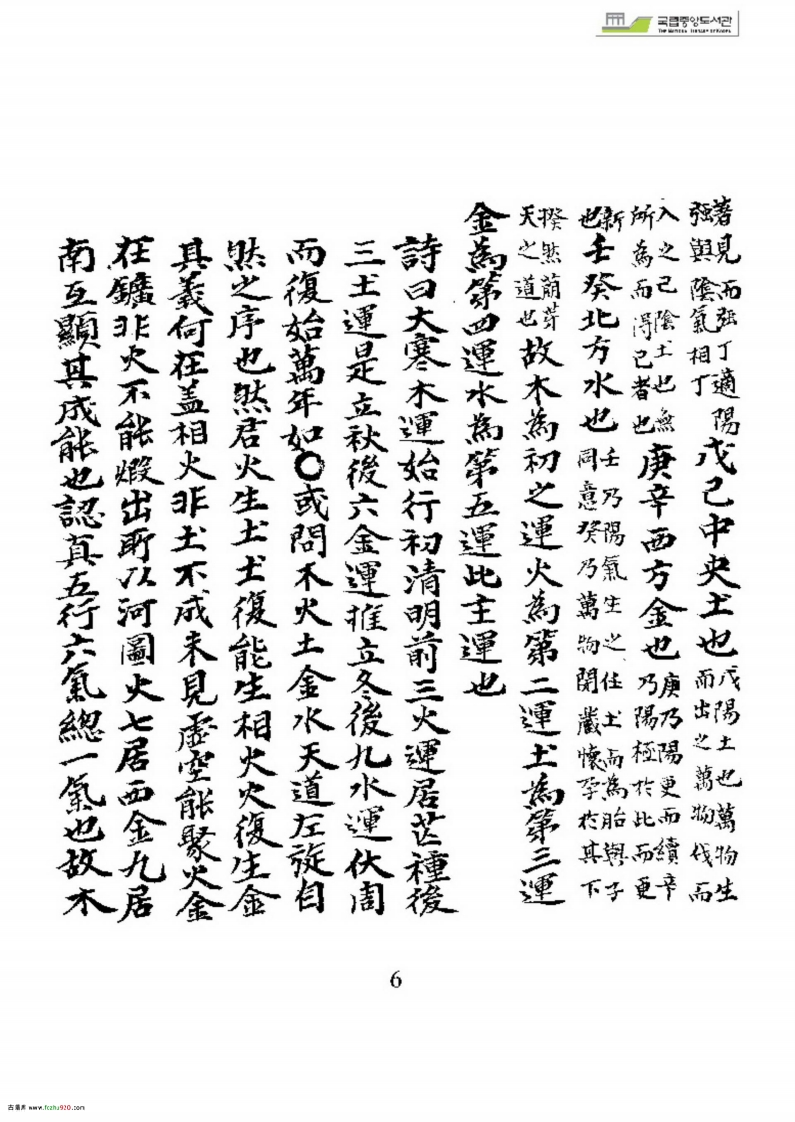 국립중앙도서관
THE NATIONAL LIBRARY OF KOREA
著見而強丁適陽強與陰氣相丁戊己中央土也戊陽土也萬物生而出之萬物伐而
入之己陰土也無所為而得己者也庚辛西方金也庚乃陽更而續辛乃陽極於此而更
新也壬癸北方水也壬乃陽氣生之任士而為胎與子同意癸乃萬物閉藏懷孕於其下
揆然萠芽天之道也故木為初之運火為第二運土為第三運
金為第四運水為第五運此主運也
詩曰大寒木運始行初清明前三火運居芒種後
三土運是立秋後六金運推立冬後九水運伏周
而復始萬年如〇或問木火土金水天道左旋自
然之序也然君火生土土復能生相火火復生金
其義何在盖相火非土不成未見虛空能聚火金
在鑛非火不能煆出所以河圖火七居西金九居
南互顯其成能也認真五行六氣總一氣也故木
6
古籍库 www.fozhu920.com